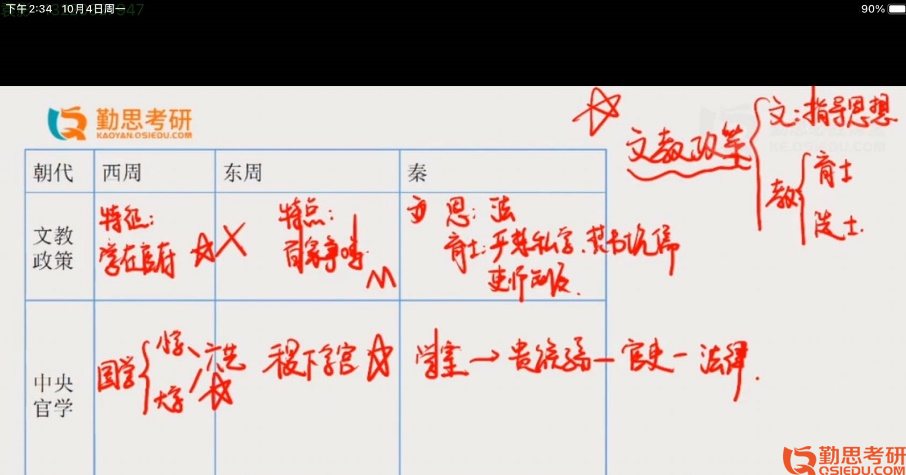 下午2:34 10月4日周一
90%
勤思考研
KAOYAN.OSIEDU.COM
文教政策
文:指导思想
教
育士
选士.
朝代 西周 东周 秦
文教政策
特征:
学在官府
特点:
百家争鸣
思:法
育士:严禁私学.焚书坑儒
吏师制度.
中央官学
国学
小学
大学
六艺
稷下学宫
学室→贵族子弟—官吏—法律.
勤思考研
KAOYAN.OSIEDU.COM